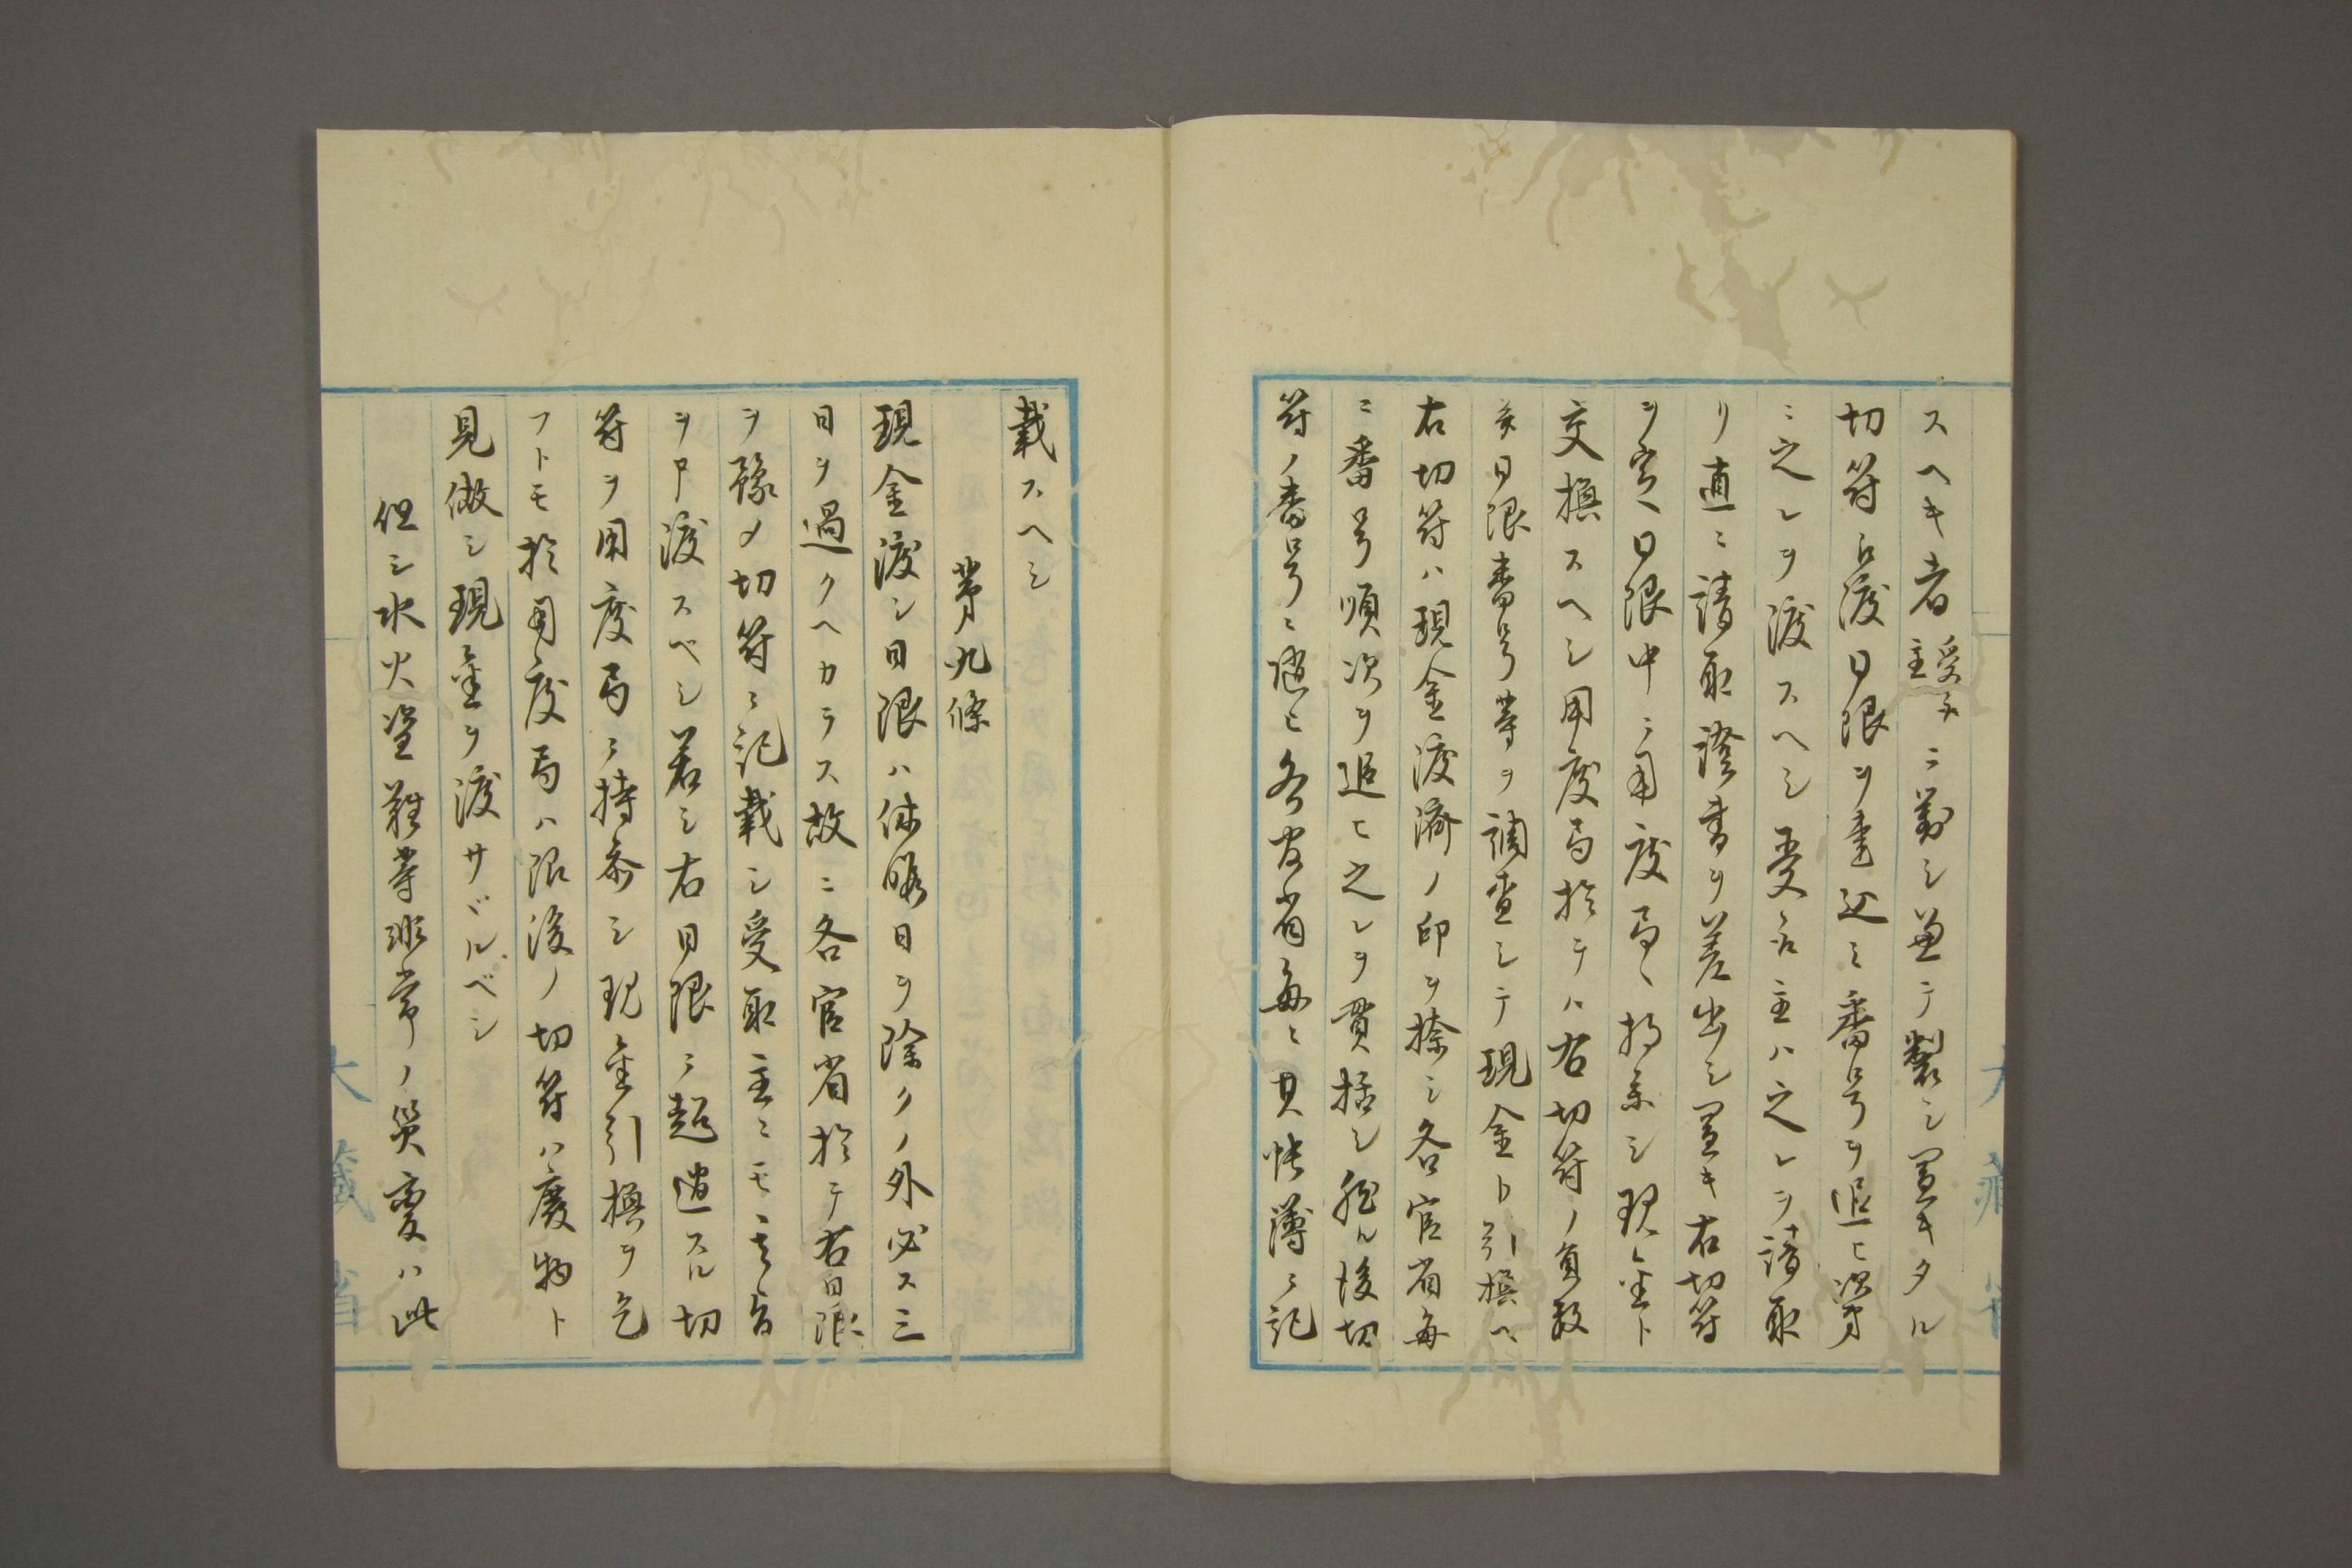 スヘキ者受取主ニ対シ兼テ製シ置キタル
切符占渡日限ヲ書込ミ番号ヲ追ヒ次第
ニ之レヲ渡スヘシ受取主ハ之レヲ請取
リ直ニ請取證書ヲ差出シ置キ右切符
ヲ定ヘ日限中ニ用度局ヘ持参シ現金ト
交換スヘシ用度局於テハ右切符ノ員数
日限番号等ヲ調査シテ現金ト引換ヘ
右切符ハ現金渡済ノ印ヲ捺シ各官省毎
ニ番号順次ヲ追ヒ之レヲ貫括シ然ル後切
符ノ番号ニ随ヒ各官省毎ニ其帳簿ニ記
載スヘシ
第九條
現金渡シ日限ハ休暇日ヲ除クノ外必ス三
日ヲ過クヘカラス故ニ各官省於テ右日限
ヲ豫メ切符ニ記載シ受取主ニモ其旨
ヲ申渡スベシ若シ右日限ニ超過スル切
符ヲ用度局ニ持参シ現金引換ヲ乞
フトモ於用度局ハ限後ノ切符ハ廃物ト
見做シ現金ヲ渡サヾルベシ
但シ水火盗難等非常ノ災変ハ此
大藏省